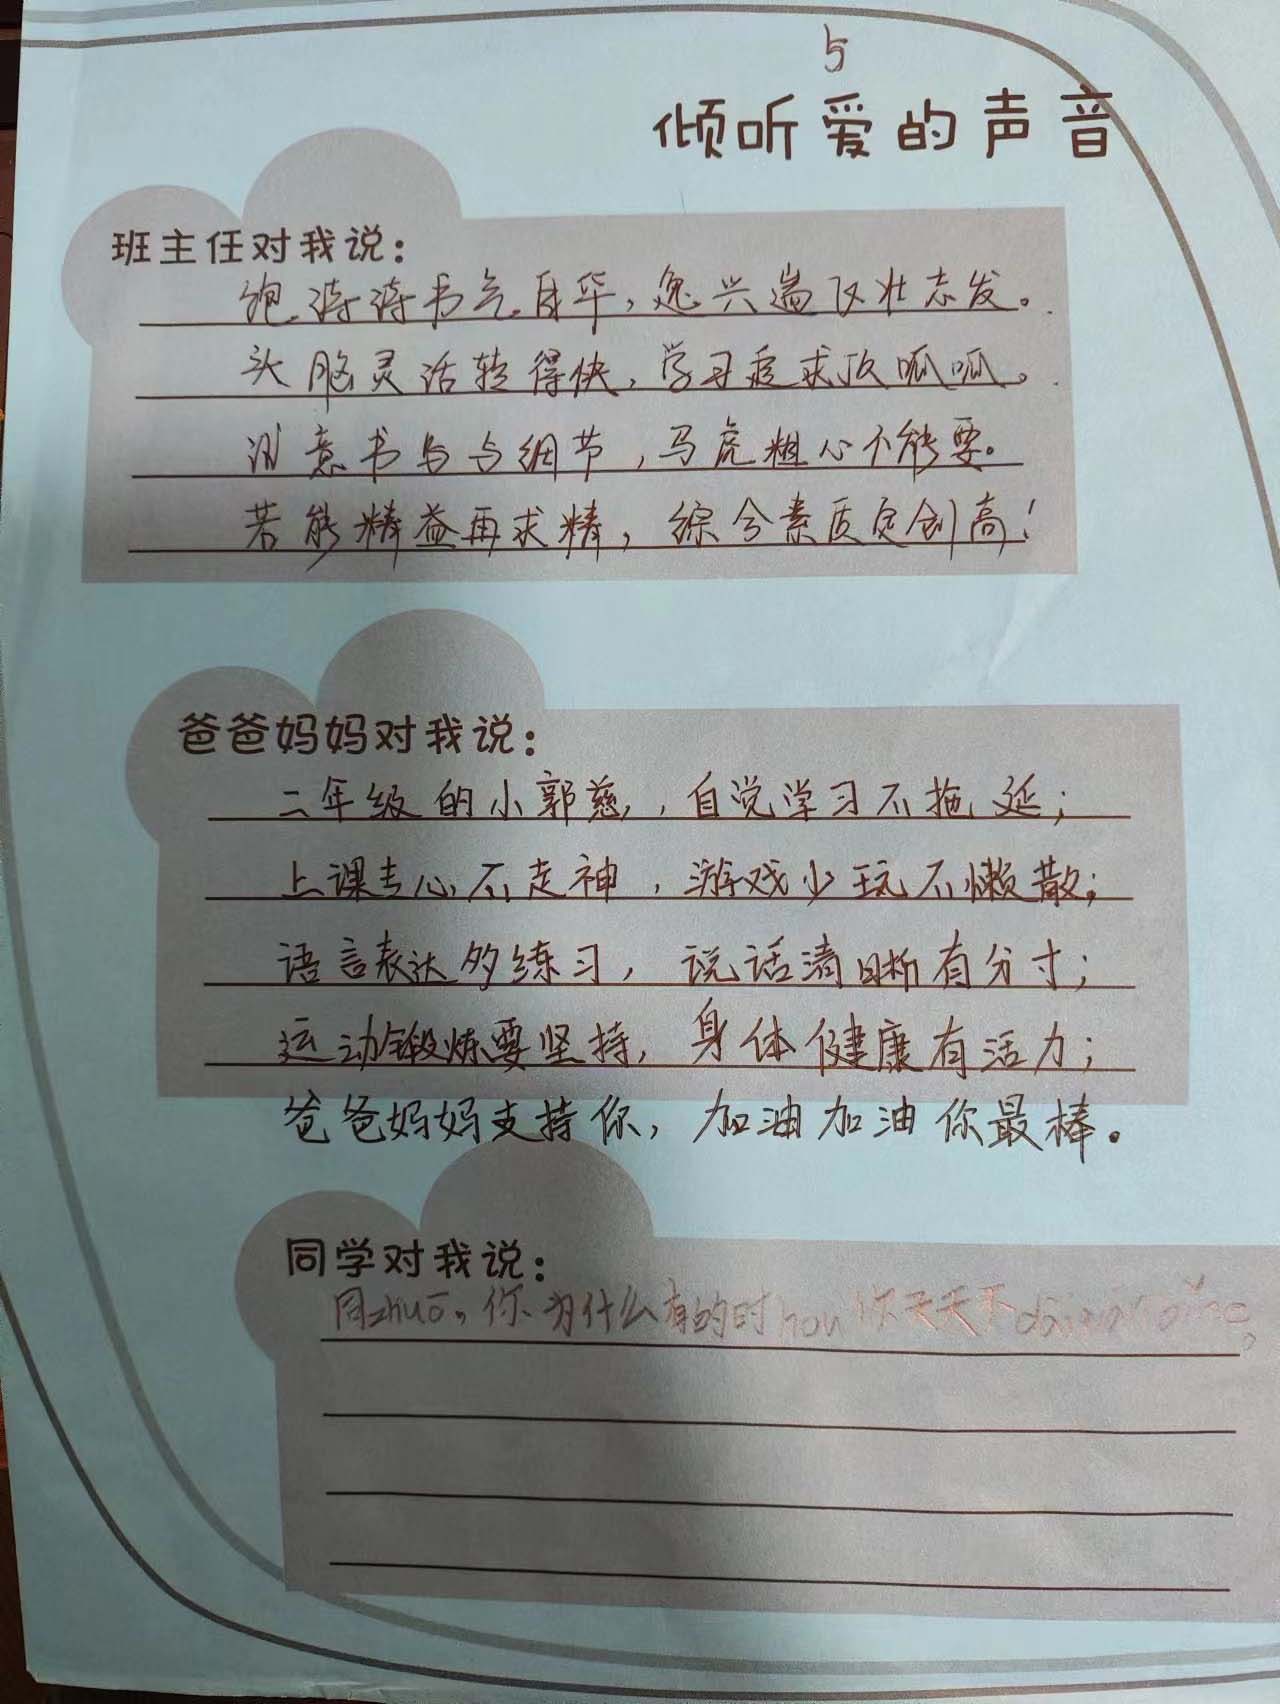 5
倾听爱的声音
班主任对我说：
饱诗诗书气自华，逸兴遄飞壮志发。
头脑灵活转得快，学习要求顶呱呱。
注意书写与细节，马虎粗心不能要。
若能精益再求精，综合素质定创高！
爸爸妈妈对我说：
二年级的小郭慈，自觉学习不拖延；
上课专心不走神，游戏少玩不懒散；
语言表达多练习，说话清晰有分寸；
运动锻炼要坚持，身体健康有活力；
爸爸妈妈支持你，加油加油你最棒。
同学对我说：
同zhuō，你为什么有的时hou你天天不